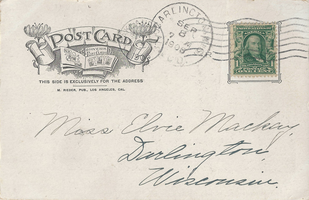 POST CARD
THIS SIDE IS EXCLUSIVELY FOR THE ADDRESS
M. RIEDER, PUB., LOS ANGELES, CAL.
DARLINGTON
SEP
Miss Elvie Mackay,
Darlington,
Wisconsin.